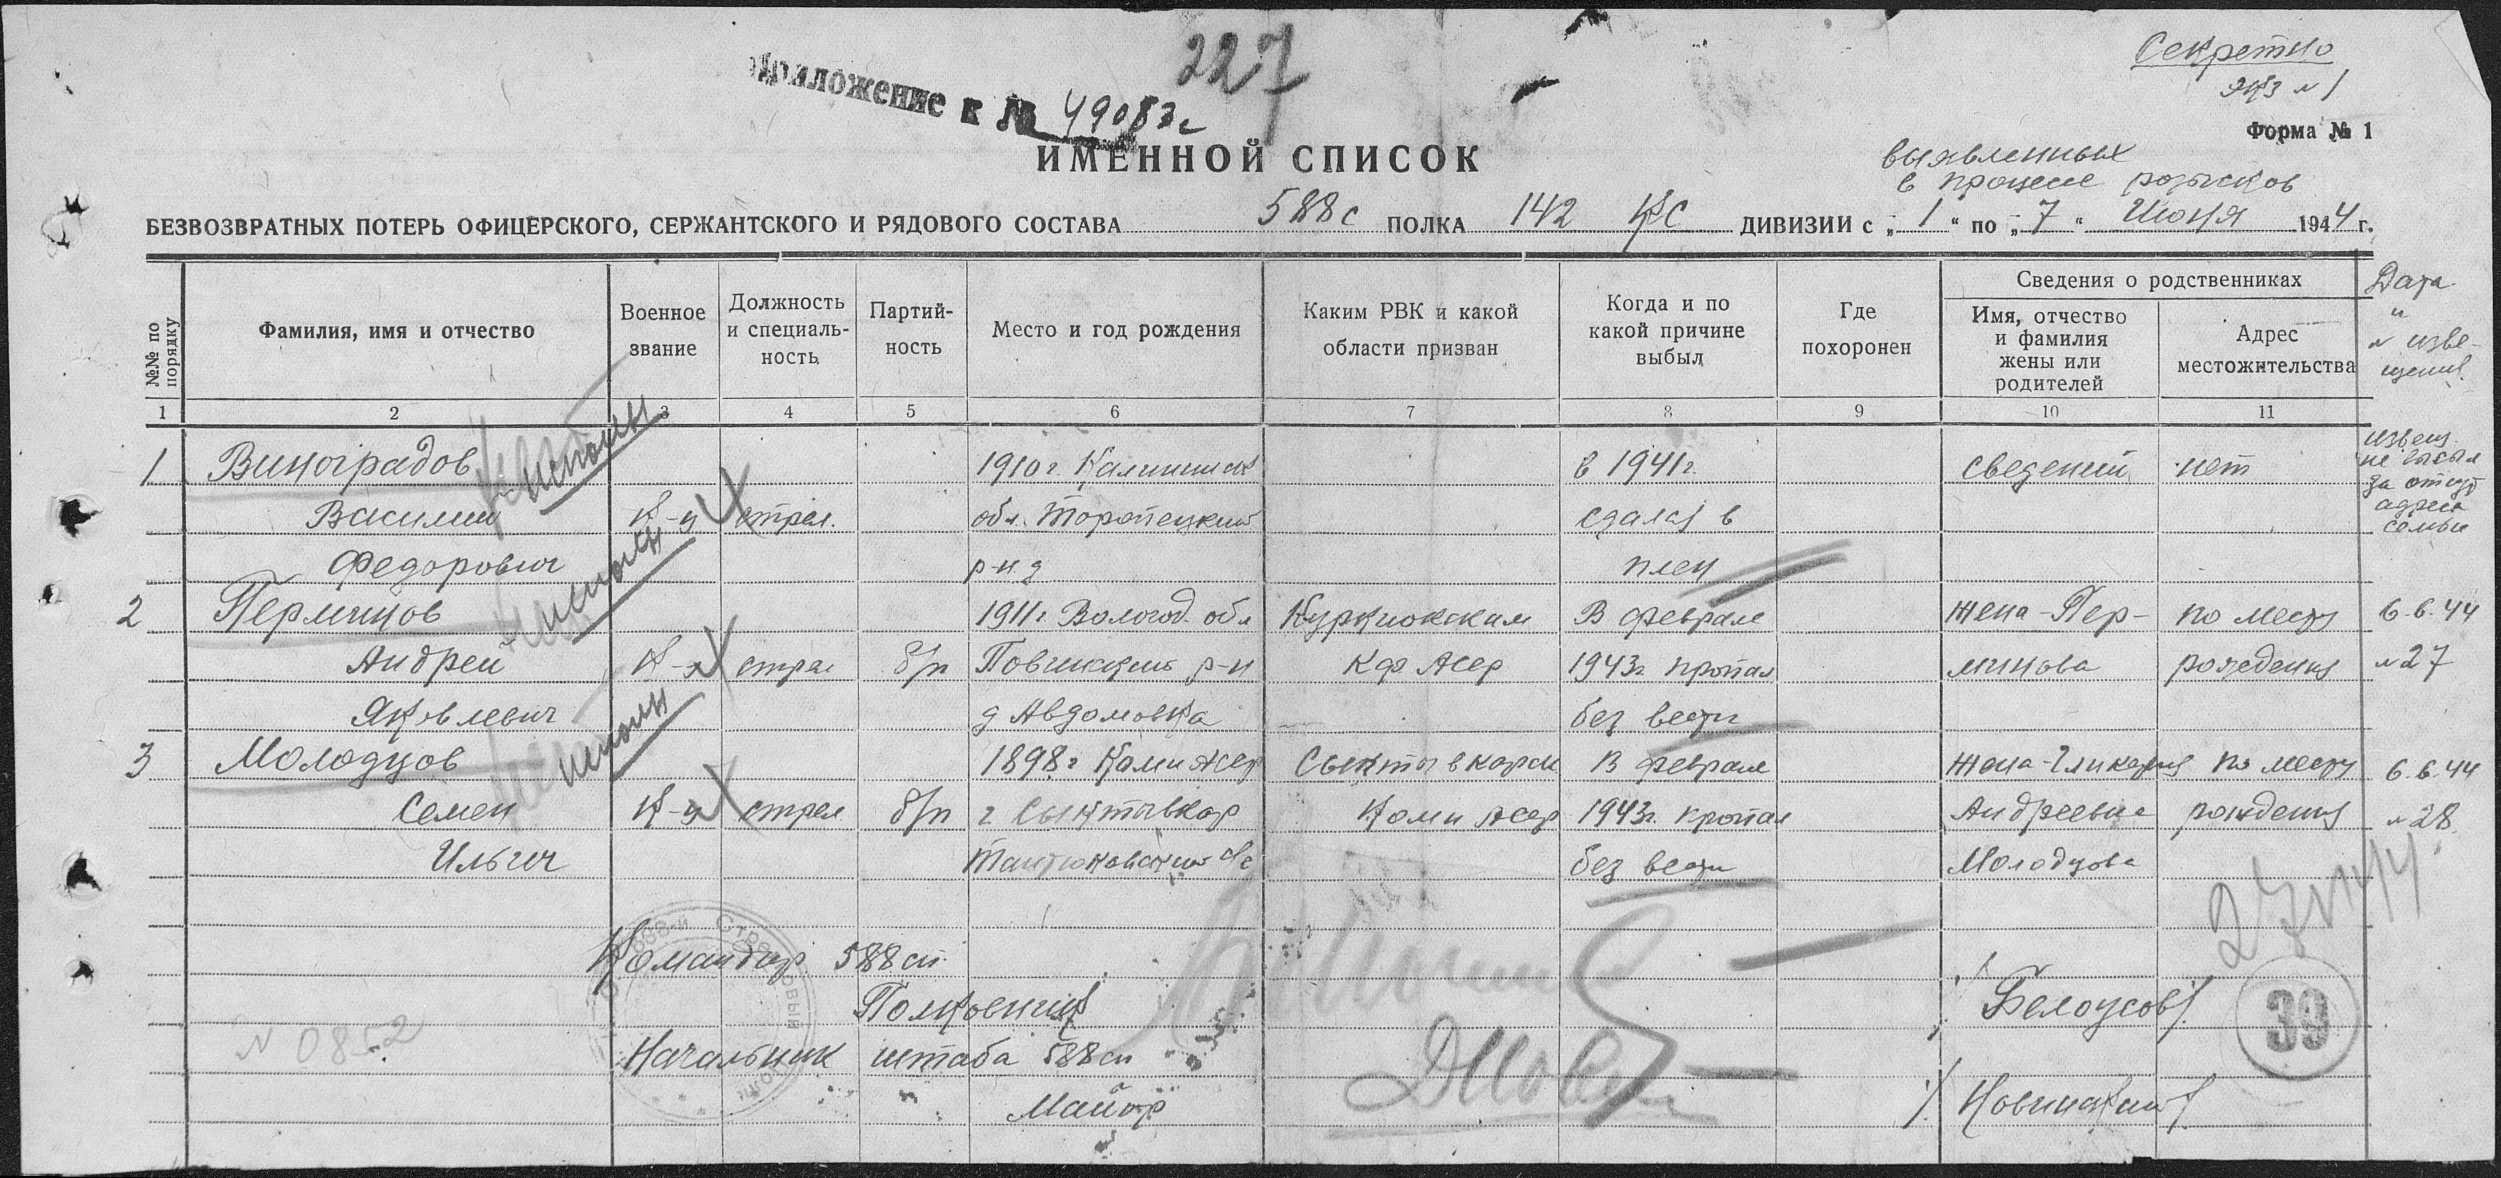 227
Секретно
экз № 1
Приложение к № 49083с
Форма № 1
ИМЕННОЙ СПИСОК
выявленных
в процесе розысков
БЕЗВОЗВРАТНЫХ ПОТЕРЬ ОФИЦЕРСКОГО, СЕРЖАНТСКОГО И РЯДОВОГО СОСТАВА 588 с ПОЛКА 142 КС ДИВИЗИИ с „1“ по „7“ Июня 1944 г.
№№ по порядку
Фамилия, имя и отчество
Военное звание
Должность и специальность
Партийность
Место и год рождения
Каким РВК и какой области призван
Когда и по какой причине выбыл
Где похоронен
Сведения о родственниках
Имя, отчество и фамилия жены или родителей
Адрес местожительства
Дата и № извещения
1 2 3 4 5 6 7 8 9 10 11
1 Виноградов 1910 г. Калининск в 1941 г. сведений нет извещ.
Василий к-ц стрел. обл. Торопецкий сдался в
не высыл за отсут адреса семьи
Федорович р-н д плен
2 Перминов 1911 г. Вологод. обл Куркиокским В феврале жена - Пер- по месту 6.6.44
Андрей к-ц стрел б/п р-н Кф Асср 1943 г. пропал минова рождения № 27
Яковлевич д Авдомовка без вести
3 Молодцов 1898 г Коми Асср Сыктывкарск В феврале жена - Гликерия по месту 6.6.44
Семен к-ц стрел б/п г Сыктывкар Коми Асср 1943 г. пропал Андреевна рождения № 28
Ильич без вести Молодцова
Командир 588 сп
Полковник /Белоусов/
39
№ 0852
Начальник штаба 588 сп
Майор /Новицкий/